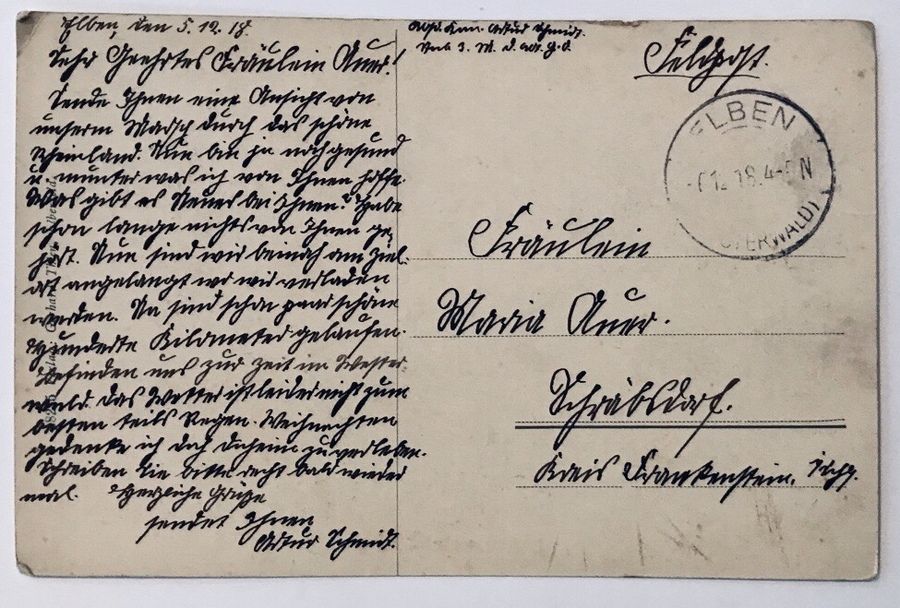 Elben, den 5.12.18.
Sehr Geehrtes Fräulein Auer!
Sende Ihnen eine Ansicht von
unserm Marsch durch das schöne
Rheinland. Nun bin ja noch gesund
u. munter was ich von Ihnen hoffe.
Was gibt es Neues bei Ihnen? Habe
schon lange nichts von Ihnen ge
hört. Nun sind wir beinah am Ziel-
ort angelangt wo wir verladen
werden. Na sind schon paar schöne
Hunderte Kilometer gelaufen.
Befinden uns zur Zeit im Wester
wald. Das Wetter ist leider nicht zum
besten teils Regen. Weihnachten
gedenke ich doch daheim zu verleben.
Schreiben Sie bitte recht bald wieder
mal. Herzliche Grüße
sendet Ihnen
Artur Schmidt.
Abs. Kan. Artur Schmidt.
3. d.
Feldpost.
ELBEN
12. 18. 4-5 N
(WESTERWALD)
Fräulein
Maria Auer.
Schräbsdorf.
Kreis Frankenstein, Schl.